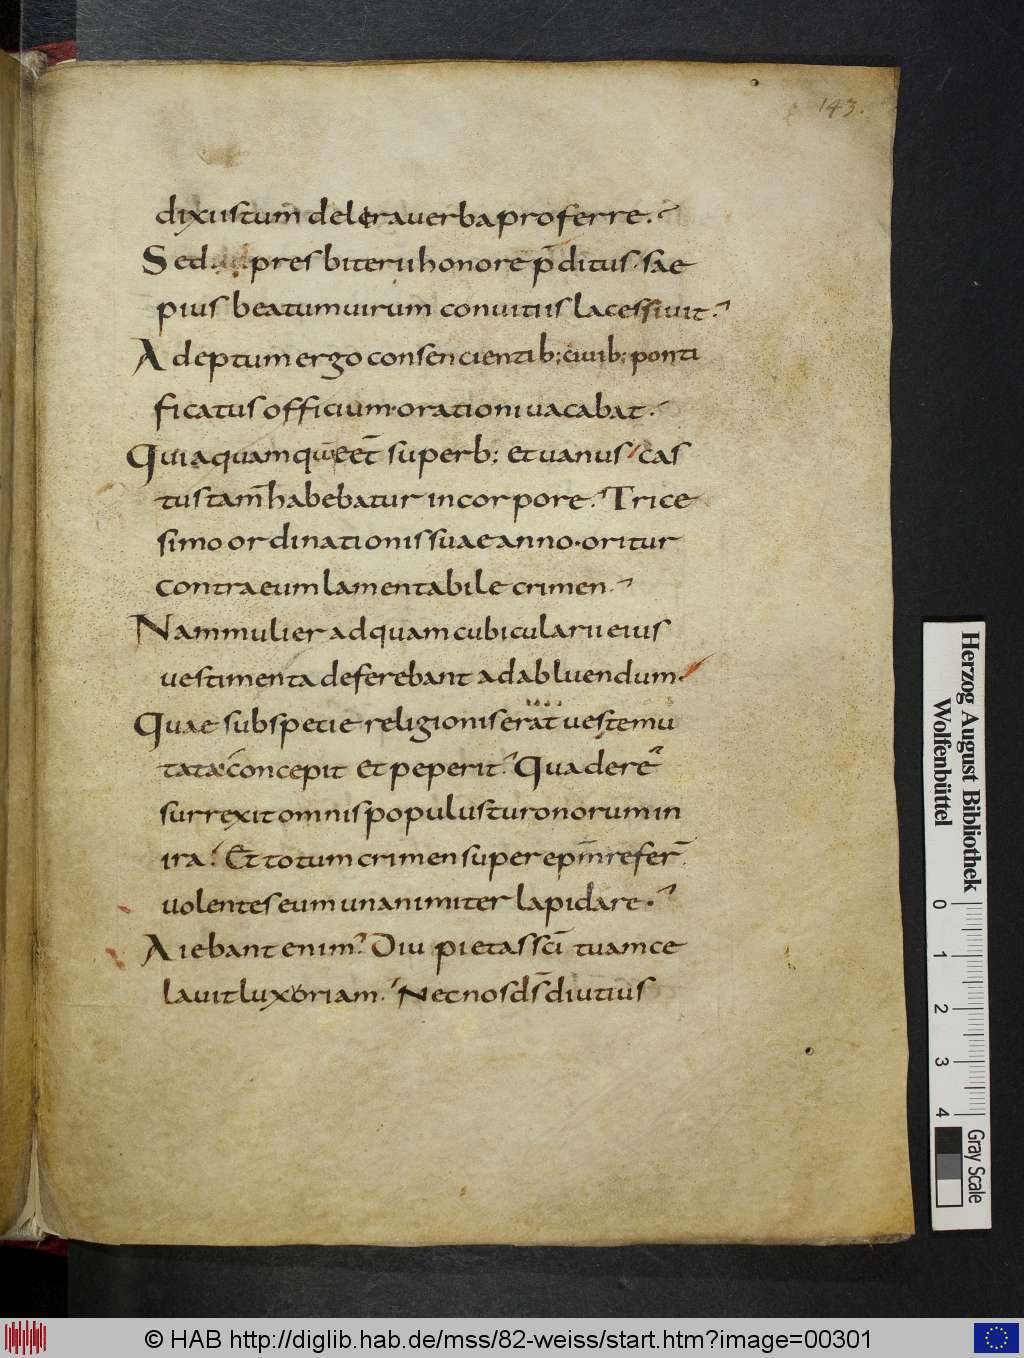 143.
dixi istum delera verba proferre.
Sed presbiterii honore p̄ditus. sae
pius beatum virum convitiis lacessivit.
Adeptum ergo consencientib; civib; ponti
ficatus officium. orationi vacabat.
Quia quamq̄ eēt superb; et vanus cas
tus tam̄ habebatur in corpore. Trice
simo ordinationis suae anno. oritur
contra eum lamentabile crimen.
Nam mulier ad quam cubicularii eius
vestimenta deferebant ad abluendum.
Quae sub specie religionis erat veste mu
tata concepit et peperit. Qua de rē
surrexit omnis populus turonorum in
ira. Et totum crimen super ep̄m refer̄
volentes eum unanimiter lapidare.
Aiebant enim. Diu pietas sc̄i tuam ce
lavit luxoriam. Nec nos d̄s diutius
Herzog August Bibliothek
Wolfenbüttel
0 1 2 3 4
Gray Scale
© HAB http://diglib.hab.de/mss/82-weiss/start.htm?image=00301